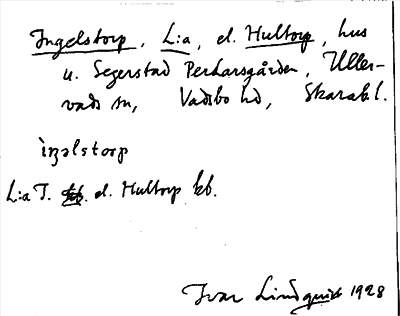 Ingelstorp, L:a, el. Hultorp, hus
u. Segerstad Perlarsgården, Ullers-
vads sn, Vadsbo hd, Skarabl.
iŋəlstorp
L:a I. el. Hultorp kb.
Ivar Lindquist 1928